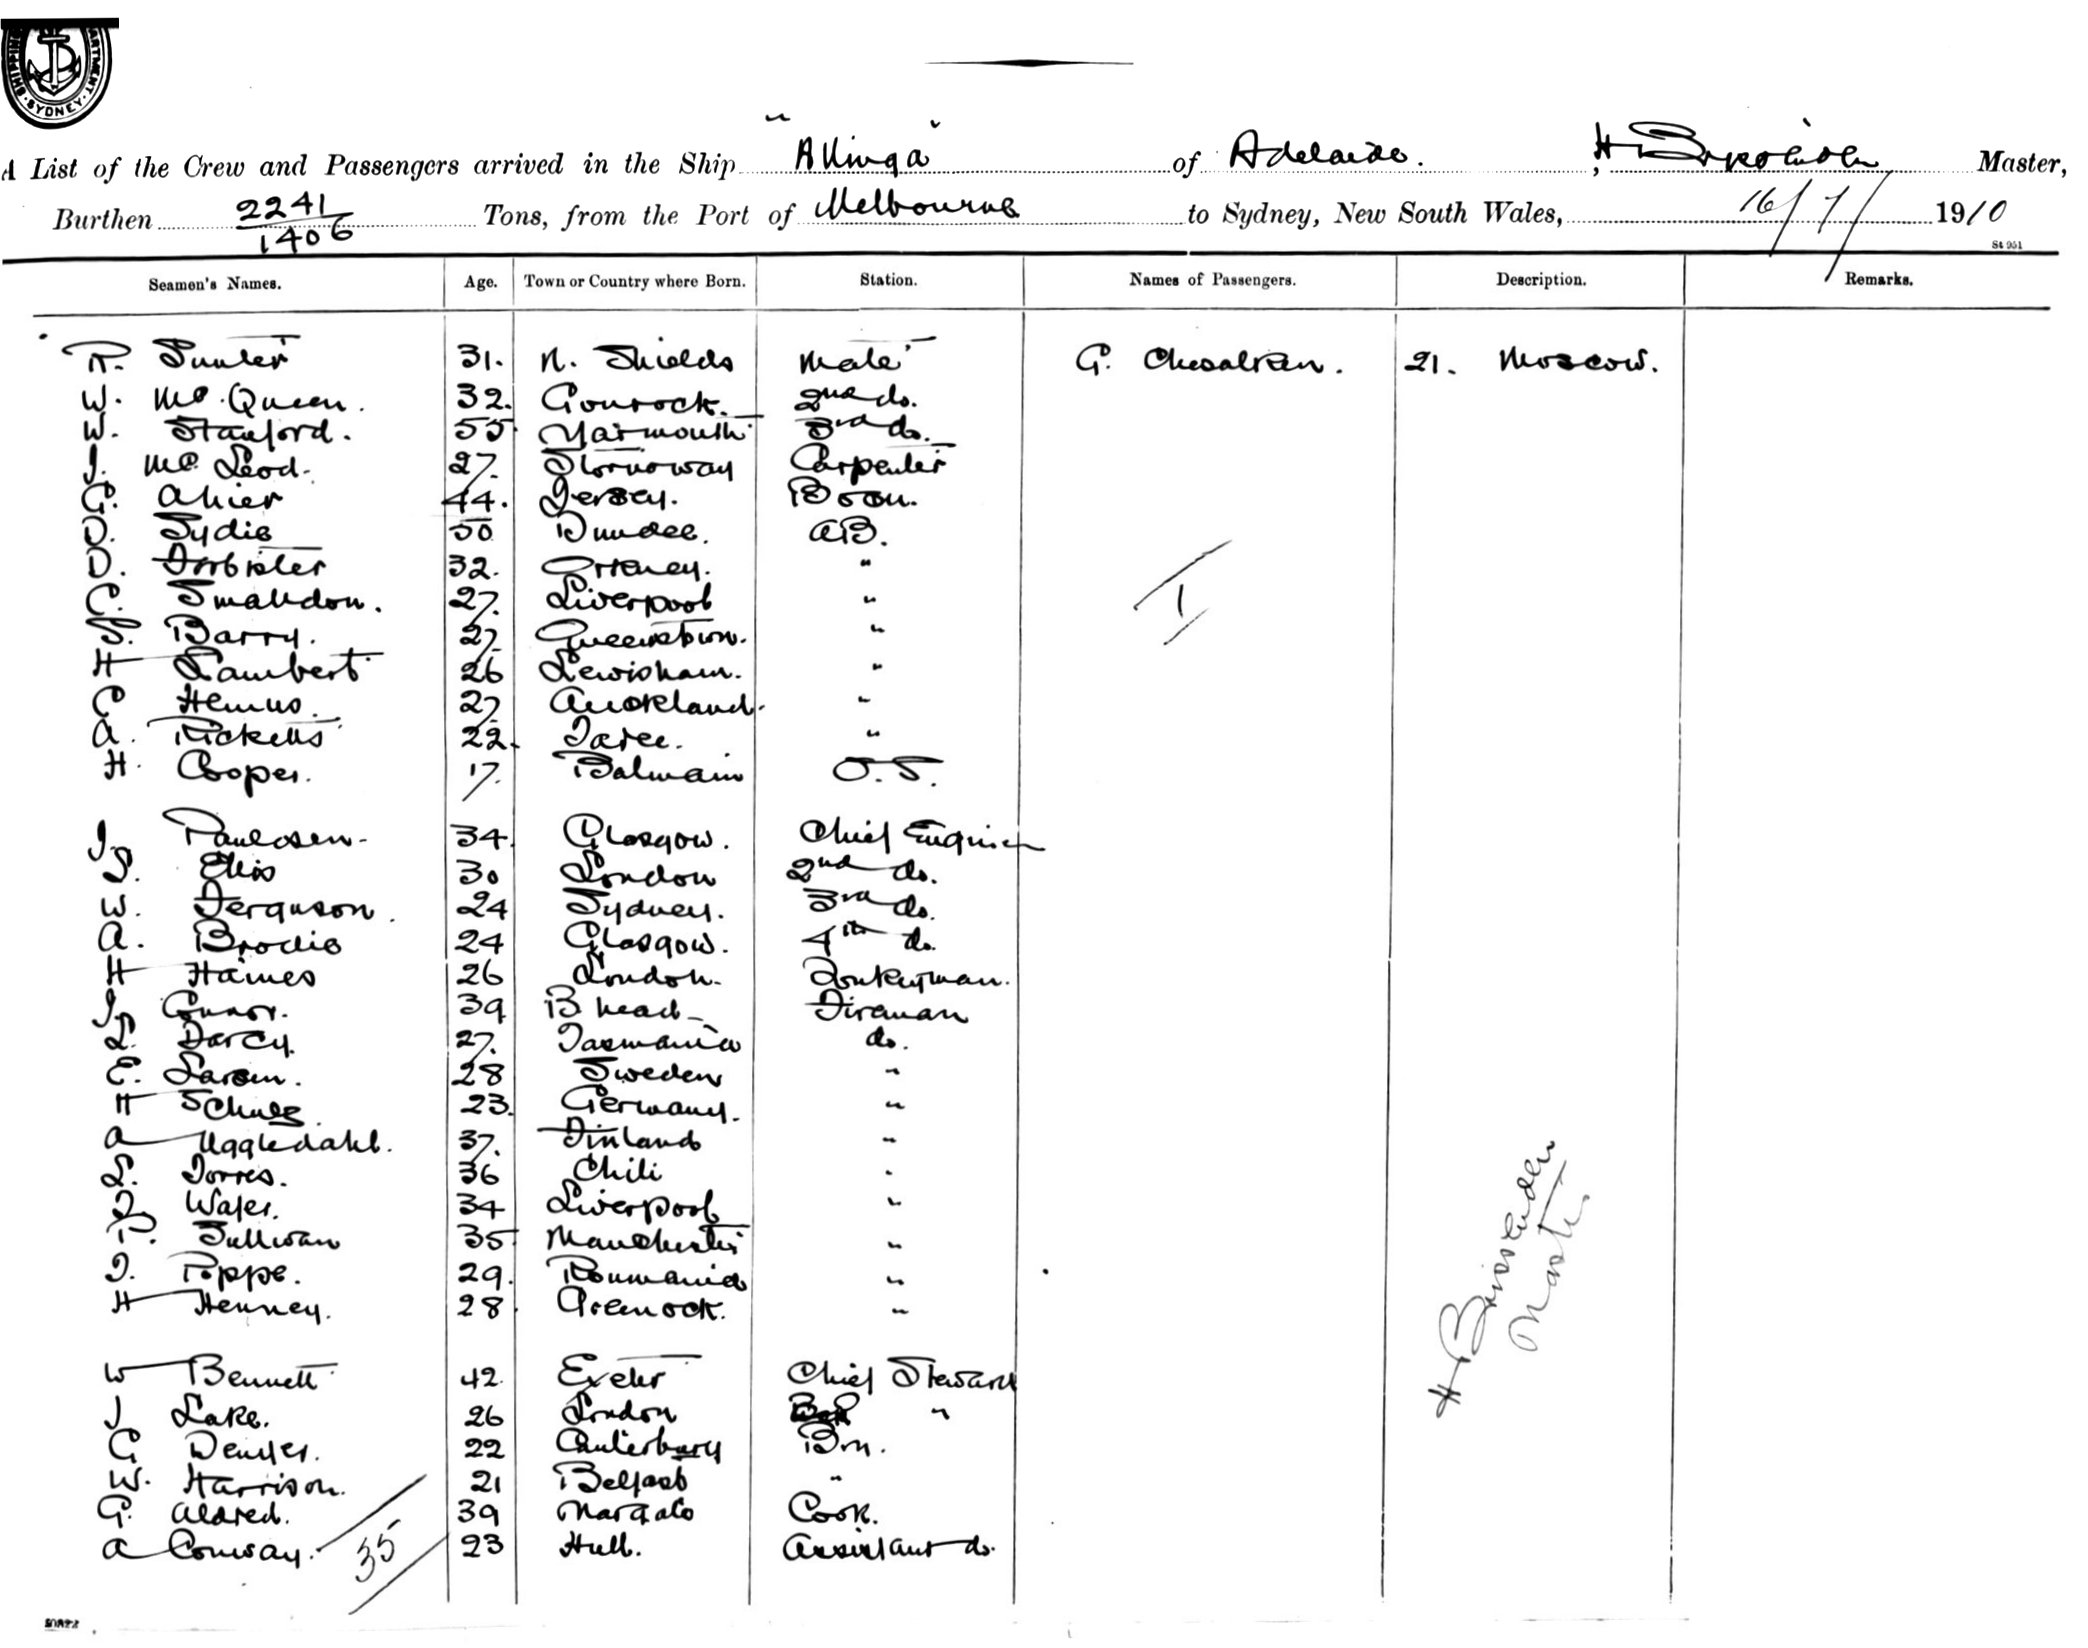 SHIPPING DEPARTMENT SYDNEY
A List of the Crew and Passengers arrived in the Ship "Allinga" of Adelaide. , H Master,
Burthen 2241/1406 Tons, from the Port of Melbourne to Sydney, New South Wales, 16/7/ 1910
St 951
Seamen's Names. Age. Town or Country where Born. Station. Names of Passengers. Description. Remarks.
R. Sunter 31. N. Shields Mate G. 21. Moscow.
W. McQueen. 32. Gourock. 2nd do.
W. Stanford. 55 Yarmouth 3rd do.
J. McLeod. 27. Stornoway Carpenter
G. Ahier 44. Jersey. Bosn.
D. Sydie 50 Dundee. AB.
D. Foubister 32. Orkney. "
C. Smalldon. 27. Liverpool "
Barry. 27. Queenstown. "
H Lambert 26 Lewisham. "
C Hemus. 27 Auckland. "
A. Ricketts 22. Taree. "
H. Cooper. 17. Balmain O.S.
1
J. Paulsen 34. Glasgow. Chief Engineer
S. Ellis 30 London 2nd do.
W. Ferguson. 24 Sydney. 3rd do.
A. Brodie 24 Glasgow. 4th do.
H Haines 26 London. Donkeyman.
J. Connor. 39 B head Fireman
L. Darcy. 27. Tasmania do.
E. Larsen. 28 Sweden "
H Schulz 23. Germany. "
A Uggledahl. 37. Finland "
L. Torres. 36 Chili "
Wafer. 34 Liverpool "
P. Sullivan 35 Manchester "
J. Poppe. 29. Roumania "
H Henney. 28 Greenock. "
W Bennett 42. Exeter Chief Steward
J Lake. 26 London "
G Denyer. 22 Canterbury Bm.
W. Harrison. 21 Belfast "
G. Aldred. 39 Margate Cook.
A Conway. 23 Hull. Assistant do.
35
H Brissenden
Master